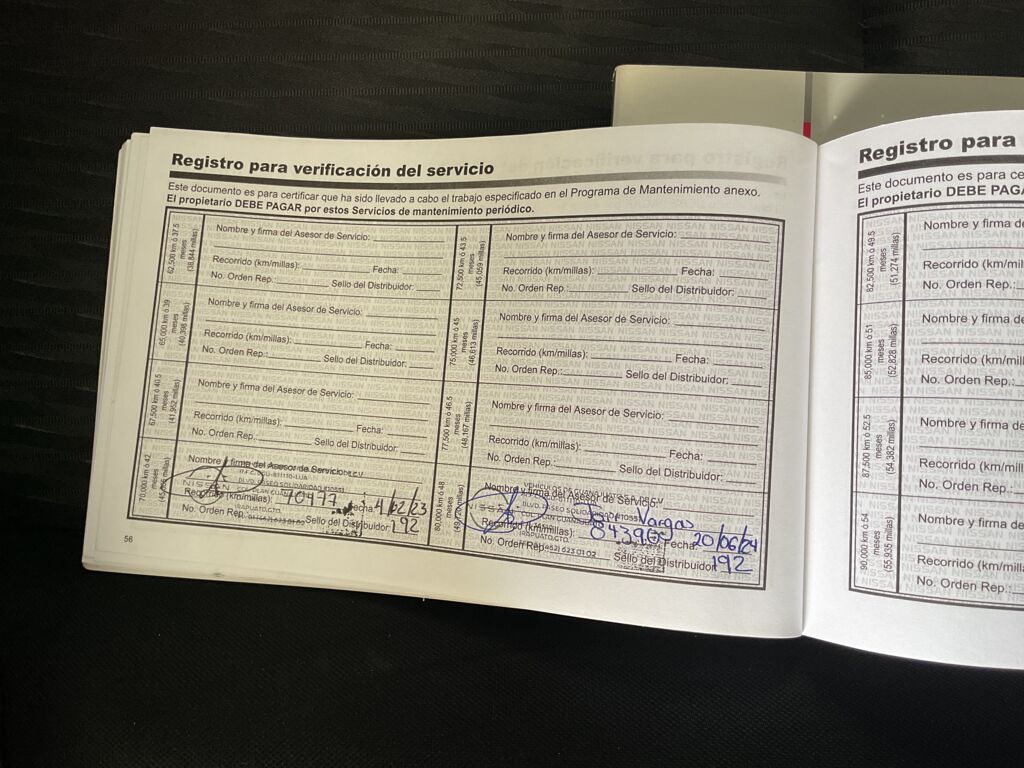 Registro para verificación del servicio
Este documento es para certificar que ha sido llevado a cabo el trabajo especificado en el Programa de Mantenimiento anexo.
El propietario DEBE PAGAR por estos Servicios de mantenimiento periódico.
62,500 km ó 37.5 meses (38,844 millas)
Nombre y firma del Asesor de Servicio:
Recorrido (km/millas): Fecha:
No. Orden Rep.: Sello del Distribuidor:
65,000 km ó 39 meses (40,398 millas)
Nombre y firma del Asesor de Servicio:
Recorrido (km/millas): Fecha:
No. Orden Rep.: Sello del Distribuidor:
67,500 km ó 40.5 meses (41,952 millas)
Nombre y firma del Asesor de Servicio:
Recorrido (km/millas): Fecha:
No. Orden Rep.: Sello del Distribuidor:
70,000 km ó 42 meses
Nombre y firma del Asesor de Servicio
NISSAN
Recorrido (km/millas): 70477 Fecha: 4/02/23
No. Orden Rep. Sello del Distribuidor: 192
56
72,500 km ó 43.5 meses (45,059 millas)
Nombre y firma del Asesor de Servicio:
Recorrido (km/millas): Fecha:
No. Orden Rep.: Sello del Distribuidor:
75,000 km ó 45 meses (46,613 millas)
Nombre y firma del Asesor de Servicio:
Recorrido (km/millas): Fecha:
No. Orden Rep.: Sello del Distribuidor:
77,500 km ó 46.5 meses (48,167 millas)
Nombre y firma del Asesor de Servicio:
Recorrido (km/millas): Fecha:
No. Orden Rep.: Sello del Distribuidor:
80,000 km ó 48 meses
Nombre y firma del Asesor de Servicio:
BLVD. PASEO SOLIDARIDAD
Vargas
Recorrido (km/millas): Fecha: 20/06/24
IRAPUATO, GTO.
No. Orden Rep. (462) 623 01 02 Sello del Distribuidor: 192
Registro para
Este documento es para ce
El propietario DEBE PAGA
82,500 km ó 49.5 meses (51,274 millas)
Nombre y firma de
Recorrido (km/mill
No. Orden Rep.:
85,000 km ó 51 meses (52,828 millas)
Nombre y firma d
Recorrido (km/mill
No. Orden Rep.:
87,500 km ó 52.5 meses (54,382 millas)
Nombre y firma d
Recorrido (km/mill
No. Orden Rep.:
90,000 km ó 54 meses (55,935 millas)
Nombre y firma d
Recorrido (km/mill
No. Orden Rep.: